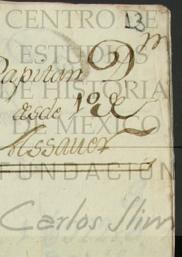 CENTRO DE
ESTUDIOS
DE HISTORIA
DE MÉXICO
FUNDACIÓN
Carlos Slim
13
Capitan Dn
desde 1º de